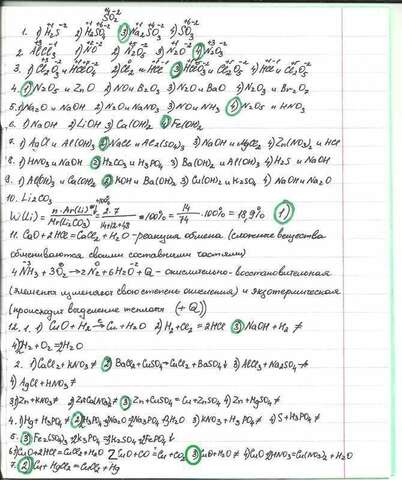 SO₂
1. 1) H₂S 2) H₂SO₄ 3) Na₂SO₃ 4) SO₃
2. AlCl₃ 1) NO 2) N₂O₅ 3) N₂O 4) N₂O₃
3. 1) Cl₂O₇ и HClO₄ 2) Cl₂ и HCl 3) HClO₃ и Cl₂O₅ 4) HCl и Cl₂O₅
4. 1) N₂O₅ и ZnO 2) NO и B₂O₃ 3) N₂O и BaO 4) N₂O₃ и
5. 1) Na₂O и NaOH 2) N₂O и NaNO₃ 3) NO и NH₃ 4) N₂O₅ и HNO₃
6. 1) NaOH 2) LiOH 3) Ca(OH)₂ 4) Fe(OH)₂
7. 1) AgCl и Al(OH)₃ 2) NaCl и Al₂(SO₄)₃ 3) NaOH и MgCl₂ 4) Zn(NO₃)₂ и HCl
8. 1) HNO₃ и NaOH 2) H₂CO₃ и H₃PO₄ 3) Ba(OH)₂ и Al(OH)₃ 4) H₂S и NaOH
9. 1) Al(OH)₃ и Ca(OH)₂ 2) KOH и Ba(OH)₂ 3) Cu(OH)₂ и K₂SO₄ 4) NaOH и Na₂O
10. Li₂CO₃
W(Li) = n·Ar(Li)·100% / Mr(Li₂CO₃) = 2·7 / 14+12+48 ·100% = 14/74 ·100% = 18,9% 1)
11. CaO + 2HCl = CaCl₂ + H₂O - реакция обмена (сложные вещества
обмениваются своими составными частями)
4NH₃ + 3O₂ → 2N₂ + 6H₂O + Q - окислительно-восстановительная
(элементы изменяют свою степень окисления) и экзотермическая
(происходит выделение теплоты (+Q))
12. 1. 1) CuO + H₂ → Cu + H₂O 2) H₂ + Cl₂ = 2HCl 3) NaOH + H₂ ≠
4) 2H₂ + O₂ = 2H₂O
2. 1) CaCl₂ + KNO₃ ≠ 2) BaCl₂ + CuSO₄ → CuCl₂ + BaSO₄↓ 3) AlCl₃ + Na₂SO₄ ≠
4) AgCl + HNO₃ ≠
3. 1) Zn + KNO₃ ≠ 2) Zn Ca(NO₃)₂ ≠ 3) Zn + CuSO₄ = Cu + ZnSO₄ 4) Zn + MgSO₄ ≠
4. 1) Hg + H₃PO₄ ≠ 2) 2H₃PO₄ + 3Na₂O = 2Na₃PO₄ + 3H₂O 3) KNO₃ + H₃PO₄ ≠ 4) S + H₃PO₄ ≠
5. 3) Fe₂(SO₄)₃ + 2K₃PO₄ = 3K₂SO₄ + 2FePO₄↓
6. 1) CuO + 2HCl = CuCl₂ + H₂O 2) CuO + CO = Cu + CO₂ 3) CuO + H₂O ≠ 4) CuO + 2HNO₃ = Cu(NO₃)₂ + H₂O
7. 2) Cu + HgCl₂ = CuCl₂ + Hg